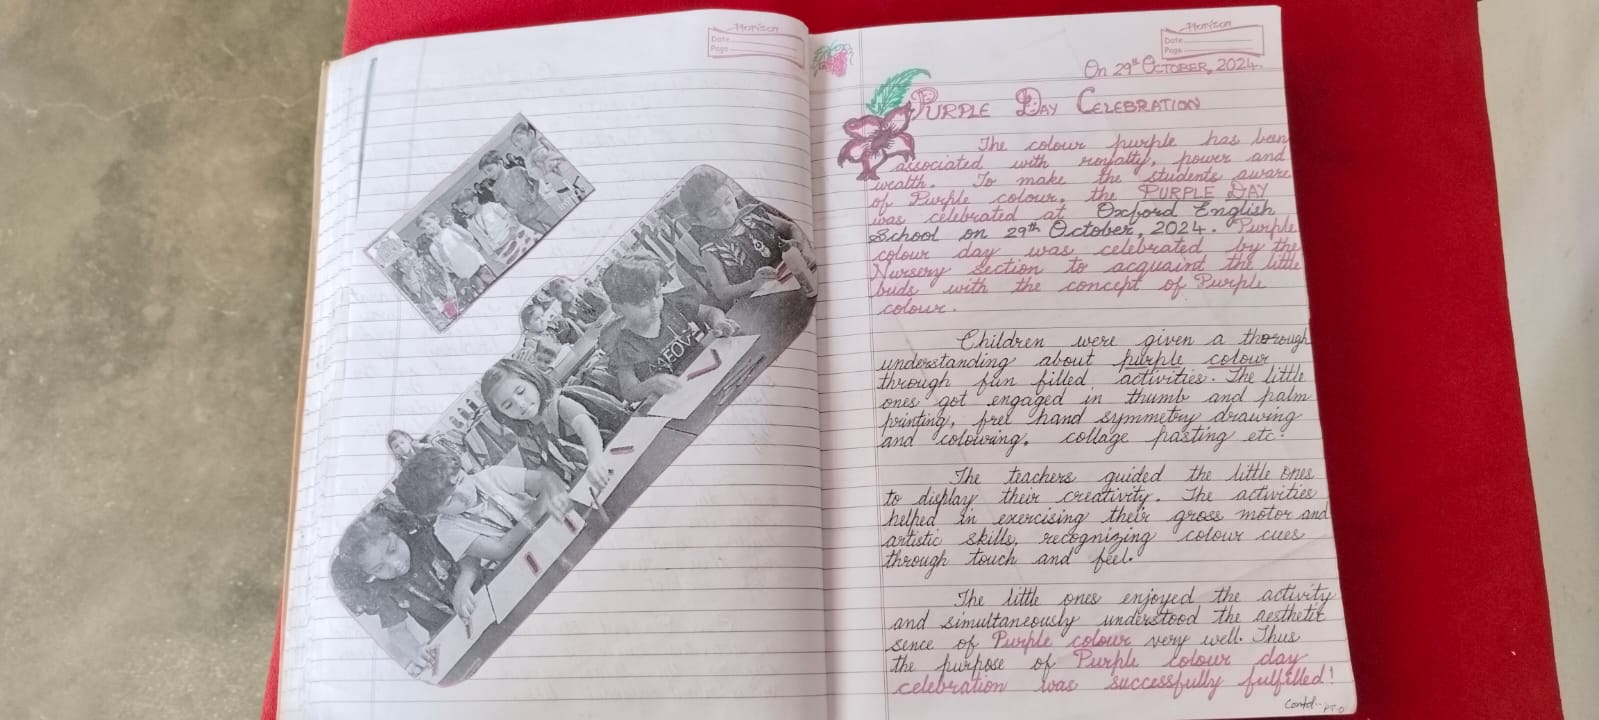 Horizon
Date
Page
Horizon
Date
Page
On 29th OCTOBER, 2024.
PURPLE DAY CELEBRATION
The colour purple has been
associated with royalty, power and
wealth. To make the students aware
of Purple colour, the PURPLE DAY
was celebrated at Oxford English
School on 29th October, 2024. Purple
colour day was celebrated by the
Nursery section to acquaint the little
buds with the concept of Purple
colour.
Children were given a thorough
understanding about purple colour
through fun filled activities. The little
ones got engaged in thumb and palm
printing, free hand symmetry drawing
and colouring, collage pasting etc.
The teachers guided the little ones
to display their creativity. The activities
helped in exercising their gross motor and
artistic skills, recognizing colour cues
through touch and feel.
The little ones enjoyed the activity
and simultaneously understood the aesthetic
sence of Purple colour very well. Thus
the purpose of Purple colour day
celebration was successfully fulfilled!
Contd.. PT.O